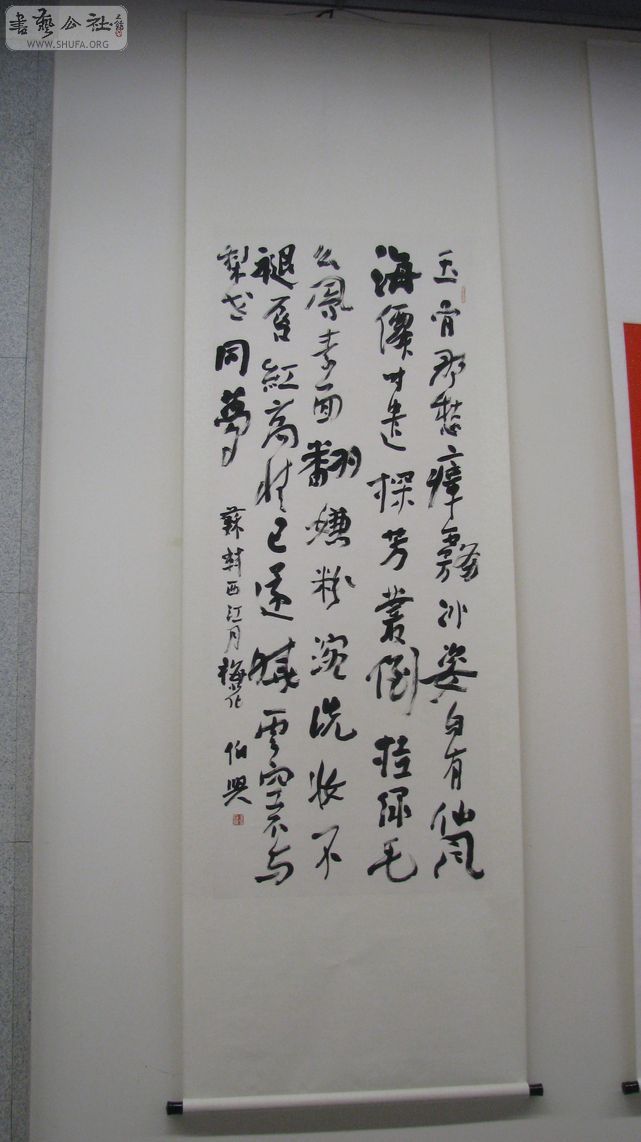 書藝公社
WWW.SHUFA.ORG
玉骨那愁瘴霧冰姿自有仙風
海僊时遣探芳叢倒挂绿毛
么鳳素面翻嫌粉涴洗妆不
褪唇紅高情已逐曉雲空不与
梨花同夢 蘇軾西江月梅花 伯興